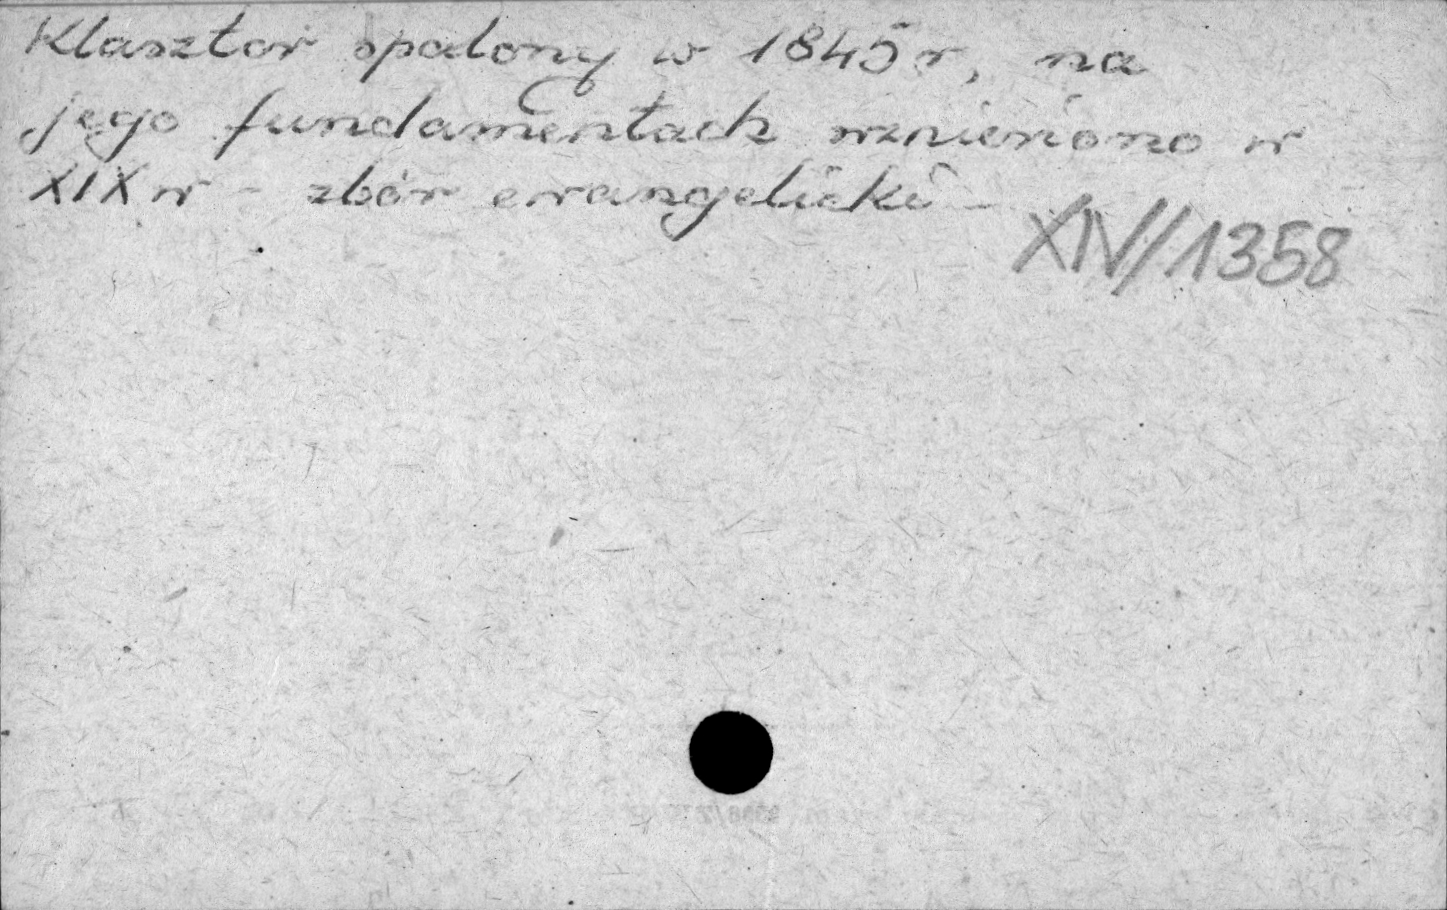 Klasztor spalony w 1845 r, na
jego fundamentach wzniesiono w
XIX w - zbór ewangelicki -
XIV/1358